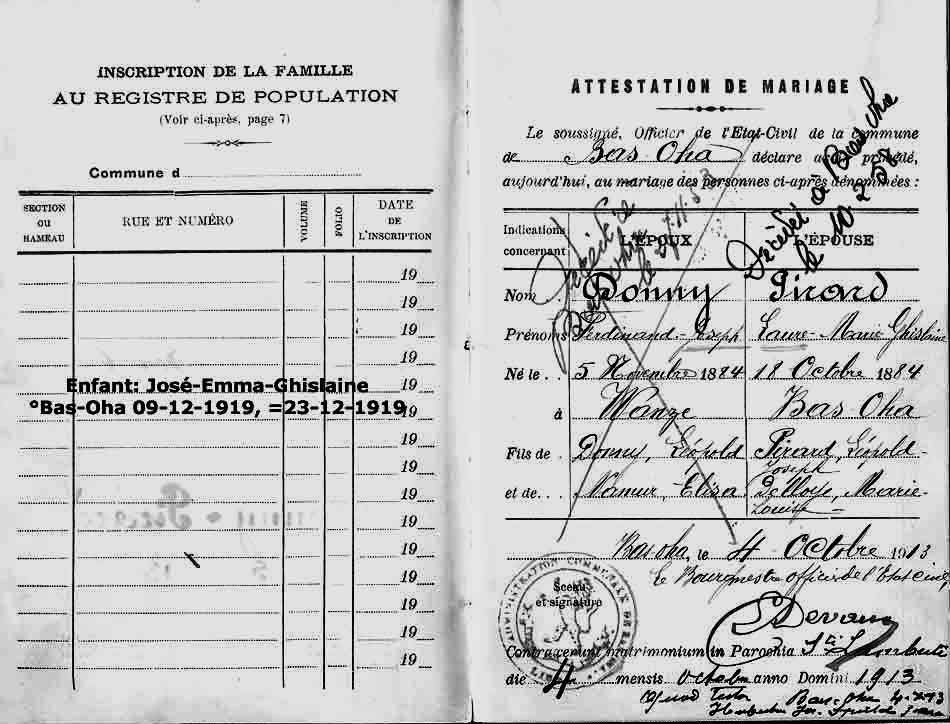 INSCRIPTION DE LA FAMILLE
AU REGISTRE DE POPULATION
(Voir ci-après, page 7)
Commune d
SECTION OU HAMEAU
RUE ET NUMÉRO
VOLUME
FOLIO
DATE DE L'INSCRIPTION
19
19
19
19
19
19
19
19
19
19
19
19
19
19
19
Enfant: José-Emma-Ghislaine
°Bas-Oha 09-12-1919, =23-12-1919
ATTESTATION DE MARIAGE
Le soussigné, Officier de l'Etat-Civil de la commune
de Bas Oha déclare avoir procédé,
aujourd'hui, au mariage des personnes ci-après dénommées :
Indications concernant
L'ÉPOUX
L'ÉPOUSE
Décédé à
le 27.11.53
Décédée à Bas-oha
le 10-2-58
Nom Donny Pirard
Prénoms Ferdinand-Joseph Laure-Marie Ghislaine
Né le .. 5 Novembre 1884 18 Octobre 1884
à Wanze Bas Oha
Fils de . Donny, Léopold Pirard, Léopold-Joseph
et de.. . Namur, Elisa Delloye, Marie-Louise
Bas oha, le 4 Octobre 1913
Le Bourgmestre officier de l'Etat civil,
Sceau
et signature
ADMINISTRATION COMMUNALE DE
Contraxerunt matrimonium in Parochia Sti Lamberti
die 4 mensis Octobris anno Domini 1913
Quod Testor Bas-oha 4-X-13